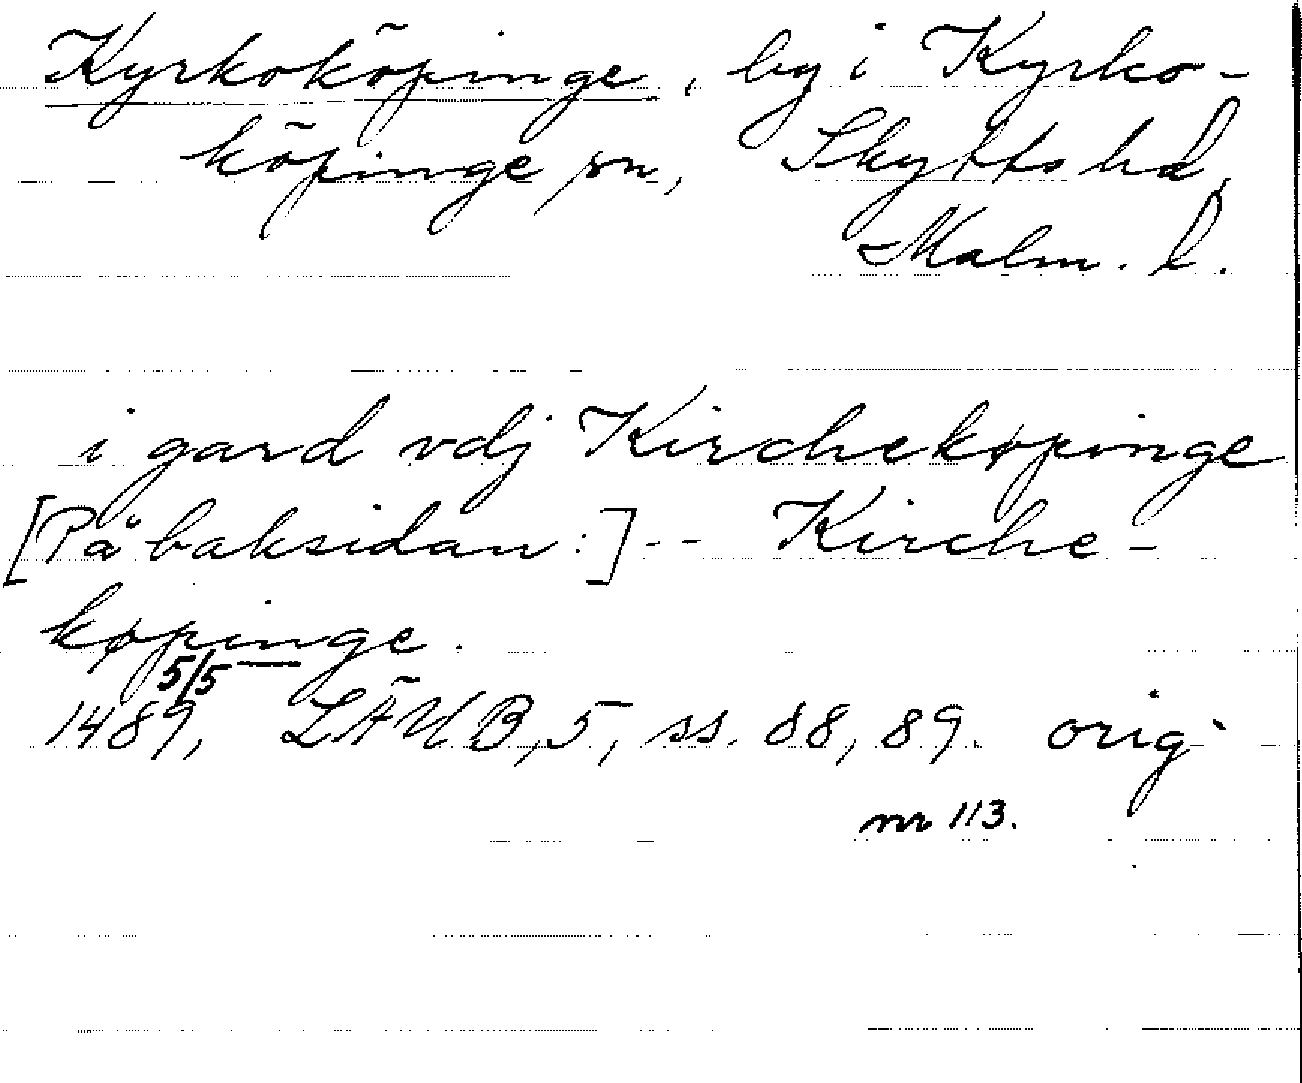 Kyrkoköpinge, by i Kyrko-
köpinge sn, Skytts hd,
Malm. l.
i gard vdj Kirchekøpinge
[På baksidan:] -- Kirche-
køpinge.
5/5 —
1489, LÄUB, 5, ss. 88, 89. orig.
nr 113.